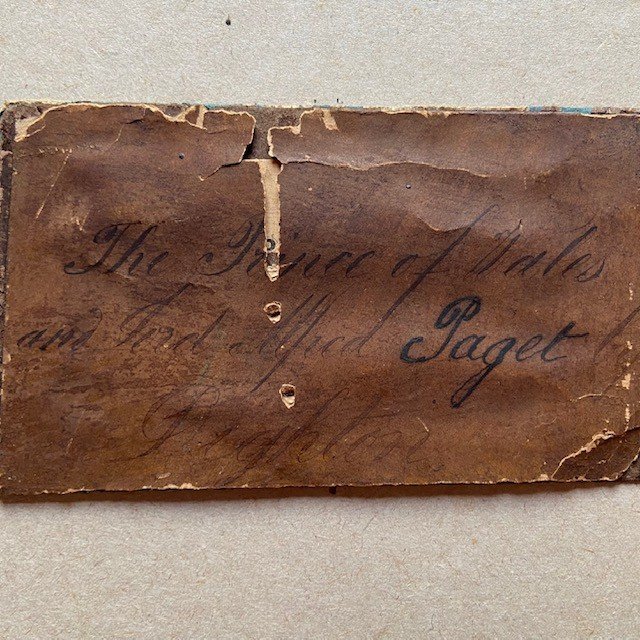 The Prince of Wales
and Lord Alfred Paget